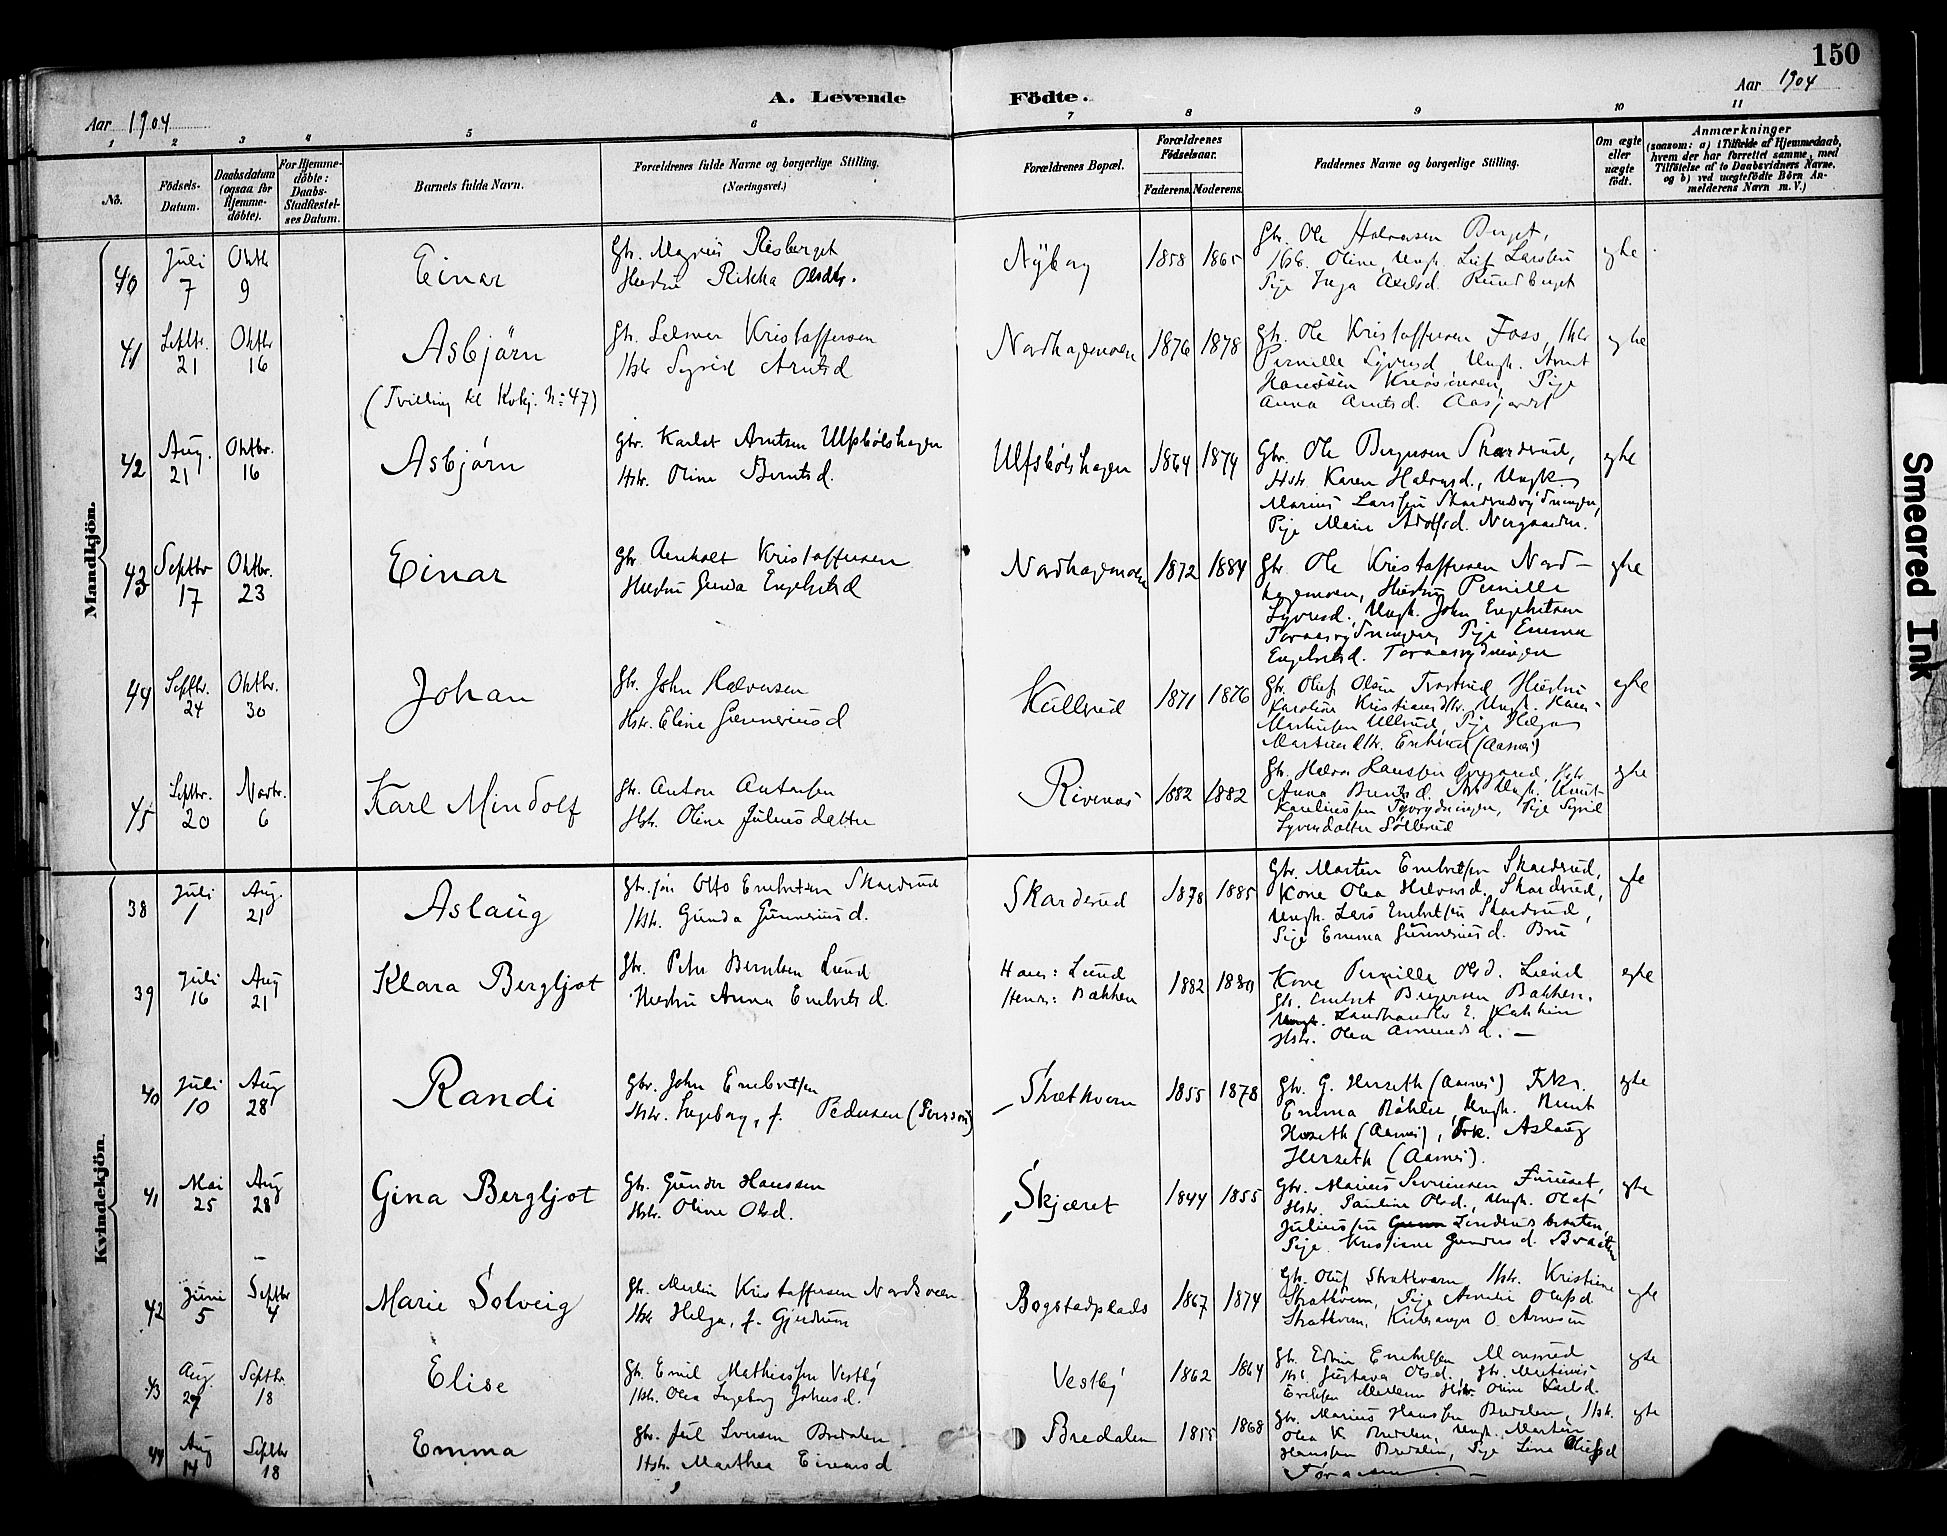 150
A. Levende Födte.
Aar 1904
Aar 1904
1 2 3 4 5 6 7 8 9 10 11
No.
Födsels-
Datum.
Daabsdatum
(ogsaa for
Hjemme-
döbte).
For Hjemme-
döbte:
Daabs-
Stadfæstel-
ses Datum.
Barnets fulde Navn.
Forældrenes fulde Navne og borgerlige Stilling.
(Næringsvei.)
Forældrenes Bopæl.
Forældrenes
Födselsaar.
Faderens. Moderens.
Faddernes Navne og borgerlige Stilling.
Om ægte
eller
uægte
födt.
Anmærkninger
(saasom: a) i Tilfælde af Hjemmedaab,
hvem der har forrettet samme, med
Tilföielse af to Daabsvidners Navne,
og b) ved uægtefödte Börn An-
melderens Navn m. V.)
Mandkjön.
40
Juli
7
Oktb
9
Einar
Gbr. Magnus Risberget
Hustru Rikka Olsdtr.
Nyborg
1858 1865
Gbr. Ole Halvorsen Berget,
Olive, Ungk. Leif Larsen
Pige Inga Axelsd. Rundberget
egte
41
Septbr.
21
Oktbr
16
Asbjörn
(Tvilling til Kvkj. No 47)
Gbr. Selmer Kristoffersen
Hstr Sigrid Arntsd
Nordhagemoen
1876 1878
Gbr. Ole Kristoffersen Foss, Hstr
Pernille Syversd Ungk. Arnt
Pige
Anna Arntsd. Aasgardet
egte
42
Aug.
21
Oktbr.
16
Asbjörn
Gbr. Karlot Arntsen Ulfsbölshagen
Hstr. Oline Berntsd.
Ulfsbölshagen
1864 1874
Gbr. Ole Bergersen Skarderud,
Hstr Karen Halvorsd., Ungk.
Marius Larssen Skarderudrydningen,
Pige Marie Adolfsd. Nergaarden.
egte
43
Septbr
17
Oktbr.
23
Einar
Gbr Kristoffersen
Hustru Gunda Engebretsd
Nordhagemoen
1872 1884
Gbr. Ole Kristoffersen Nord-
hagemoen, Hustru Pernille
Syversd. Ungk. John Engebretsen
Pige Emma
Engebretsd.
egte
44
Septbr.
24
Oktbr.
30
Johan
Gbr. John Halvorsen
Hstr. Eline Gunneriusd
Kullerud
1871 1876
Gbr. Oluf Olsen Hustru
Karoline Kristiansdtr. Ungk. Hans
Pige Helga
(Aasnes)
egte
45
Septbr.
20
Novbr.
6
Karl Mindolf
Gbr. Anton Antonsen
Hstr. Oline Juliusdatter
Rivenæs
1882 1882
Gbr. Halvor Hanssen
Anna Berntsd. Ungk. Knut
Pige Syril
Syversdatter Söllerud
egte
Kvindekjön.
38
Juli
1
Aug.
21
Aslaug
Gbr.sön Otto Embretsen Skarderud
Hstr. Gunda Gunneriusd.
Skarderud
1878 1885
Gbr. Martin Embretsen Skarderud,
Kone Olea Halvorsd. Skarderud,
Ungk. Lars Embretsen Skarderud,
Pige Emma Gunneriusd. Bru
egte
39
Juli
16
Aug
21
Klara Bergljot
Gbr. Peder Berntsen Lund
Hustru Anna Embretsd.
Hans: Lund
Hendes: Bakken
1882 1880
Kone Pernille Olsd. Lund
Gbr. Embret Bergersen Bakken.
Landhandler E.
Hstr. Olea Amundsd. —
egte
40
Juli
10
Aug
28
Randi
Gbr. John Embretsen
Hstr. Ingeborg, f. Pedersen (Persson)
Strætkvern
1855 1878
Gbr. G. Herseth (Aasnes) Frk.
Emma Böhler, Ungk. Bernt
Herseth (Aasnes), Frk. Aslaug
Herseth (Aasnes).
egte
41
Mai
25
Aug
28
Gina Bergljot
Gbr. Gunder Hanssen
Hstr. Oline Olsd.
Skjæret
1844 1855
Gbr. Marius Furuset,
Hstr. Pauline Olsd., Ungk. Olaf
Juliussen Linderudbraaten,
Pige Kristiane Gundersd. Braaten
egte
42
Juni
5
Septbr
4
Marie Solveig
Gbr. Martin Kristoffersen Nordsveen
Hstr Helga, f. Gjerdrum
Bogstadplads
1867 1874
Gbr. Oluf Strætkvern, Hstr. Kristiane
Strætkvern, Pige Amalie Olufsd
Strætkvern, Kirkesanger O. Arnesen
egte
43
Aug.
27
Septbr.
18
Elise
Gbr. Emil Mathiassen Vestby
Hstr. Olea Ingeborg Johnsd.
Vestby
1862 1864
Gbr. Edvin Embretsen
Gustava Olsd. Gbr. Martinus
Hstr Oline Karlsd.
egte
44
Aug
14
Septbr
18
Emma
Gbr. Juul Iversen Bredalen
Hstr. Marthea Einarsd
Bredalen
1855 1868
Gbr. Marius Hanssen Bredalen, Hstr.
Olea K. Bredalen, Ungk. Martin
Hanssen Bredalen, Pige Lina
egte
Smeared Ink